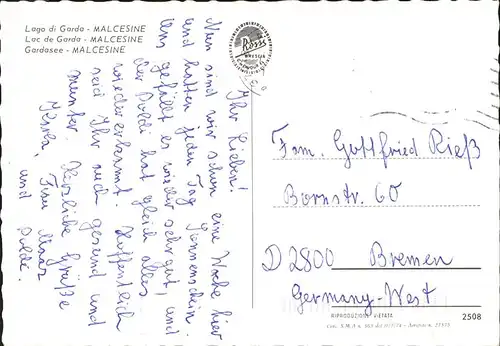 Lago di Garda - MALCESINE
Lac de Garda - MALCESINE
Gardasee - MALCESINE
Ross
BRESCIA
Ihr Lieben!
Nun sind wir schon eine Woche hier
und hatten jeden Tag Sonnenschein.
Uns gefällt es wieder sehr gut, und
der Poldi hat gleich alles
wiedererkannt. Hoffentlich
seid Ihr auch gesund und
munter. Herzliche Grüße
und Poldi.
Fam. Gottfried Rieß
Bornstr. 60
D 2800 Bremen
Germany-West
RIPRODUZIONE VIETATA
2508